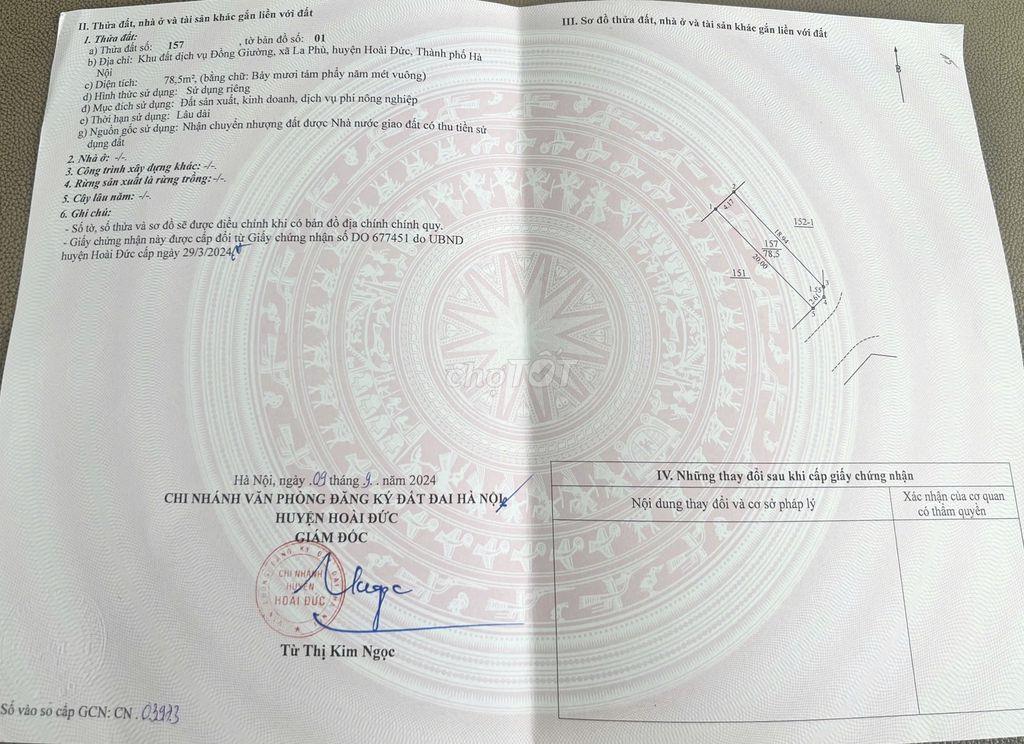 II. Thửa đất, nhà ở và tài sản khác gắn liền với đất
1. Thửa đất:
a) Thửa đất số: 157 , tờ bản đồ số: 01
b) Địa chỉ: Khu đất dịch vụ Đồng Giường, xã La Phù, huyện Hoài Đức, Thành phố Hà
Nội
c) Diện tích: 78,5m², (bằng chữ: Bảy mươi tám phẩy năm mét vuông)
d) Hình thức sử dụng: Sử dụng riêng
đ) Mục đích sử dụng: Đất sản xuất, kinh doanh, dịch vụ phi nông nghiệp
e) Thời hạn sử dụng: Lâu dài
g) Nguồn gốc sử dụng: Nhận chuyển nhượng đất được Nhà nước giao đất có thu tiền sử
dụng đất
2. Nhà ở: -/-.
3. Công trình xây dựng khác: -/-.
4. Rừng sản xuất là rừng trồng:-/-.
5. Cây lâu năm: -/-.
6. Ghi chú:
- Số tờ, số thửa và sơ đồ sẽ được điều chỉnh khi có bản đồ địa chính chính quy.
- Giấy chứng nhận này được cấp đổi từ Giấy chứng nhận số DO 677451 do UBND
huyện Hoài Đức cấp ngày 29/3/2024
Hà Nội, ngày .09 tháng 9. . năm 2024
CHI NHÁNH VĂN PHÒNG ĐĂNG KÝ ĐẤT ĐAI HÀ NỘI
HUYỆN HOÀI ĐỨC
GIÁM ĐỐC
CHI NHÁNH
HUYỆN
HOÀI ĐỨC
Ngọc
Từ Thị Kim Ngọc
Số vào sổ cấp GCN: CN . 03973
III. Sơ đồ thửa đất, nhà ở và tài sản khác gắn liền với đất
B
1
2
4.17
152-1
18.94
157
78.5
20.00
151
1.55
3
2.61
4
5
chợTỐT
IV. Những thay đổi sau khi cấp giấy chứng nhận
Nội dung thay đổi và cơ sở pháp lý
Xác nhận của cơ quan
có thẩm quyền